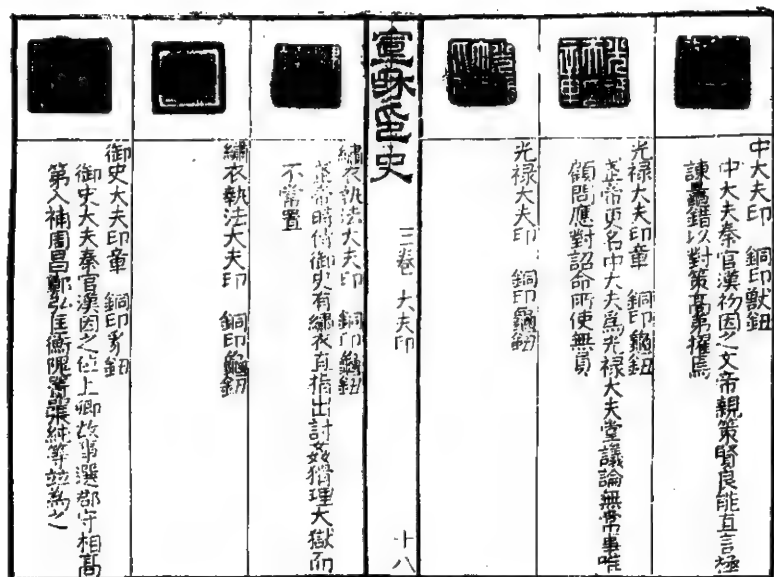 中大夫印　銅印獸鈕
中大夫秦官漢初因之文帝親策賢良能直言極
諫鼂錯以對策高第擢焉
光禄大夫印章　銅印龜鈕
武帝更名中大夫爲光禄大夫掌議論無常事唯
顧問應對詔命所使無員
光禄大夫印　銅印龜鈕
宣龢印史
三卷　大夫印
十八
繡衣執法大夫印　銅印龜鈕
武帝時侍御史有繡衣直指出討姦猾理大獄而
不常置
繡衣執法大夫印　銅印龜鈕
御史大夫印章　銅印鈕
御史大夫秦官漢因之位上卿故事選郡守相高
第入補周昌鄭弘匡衡隗囂張純等並為之